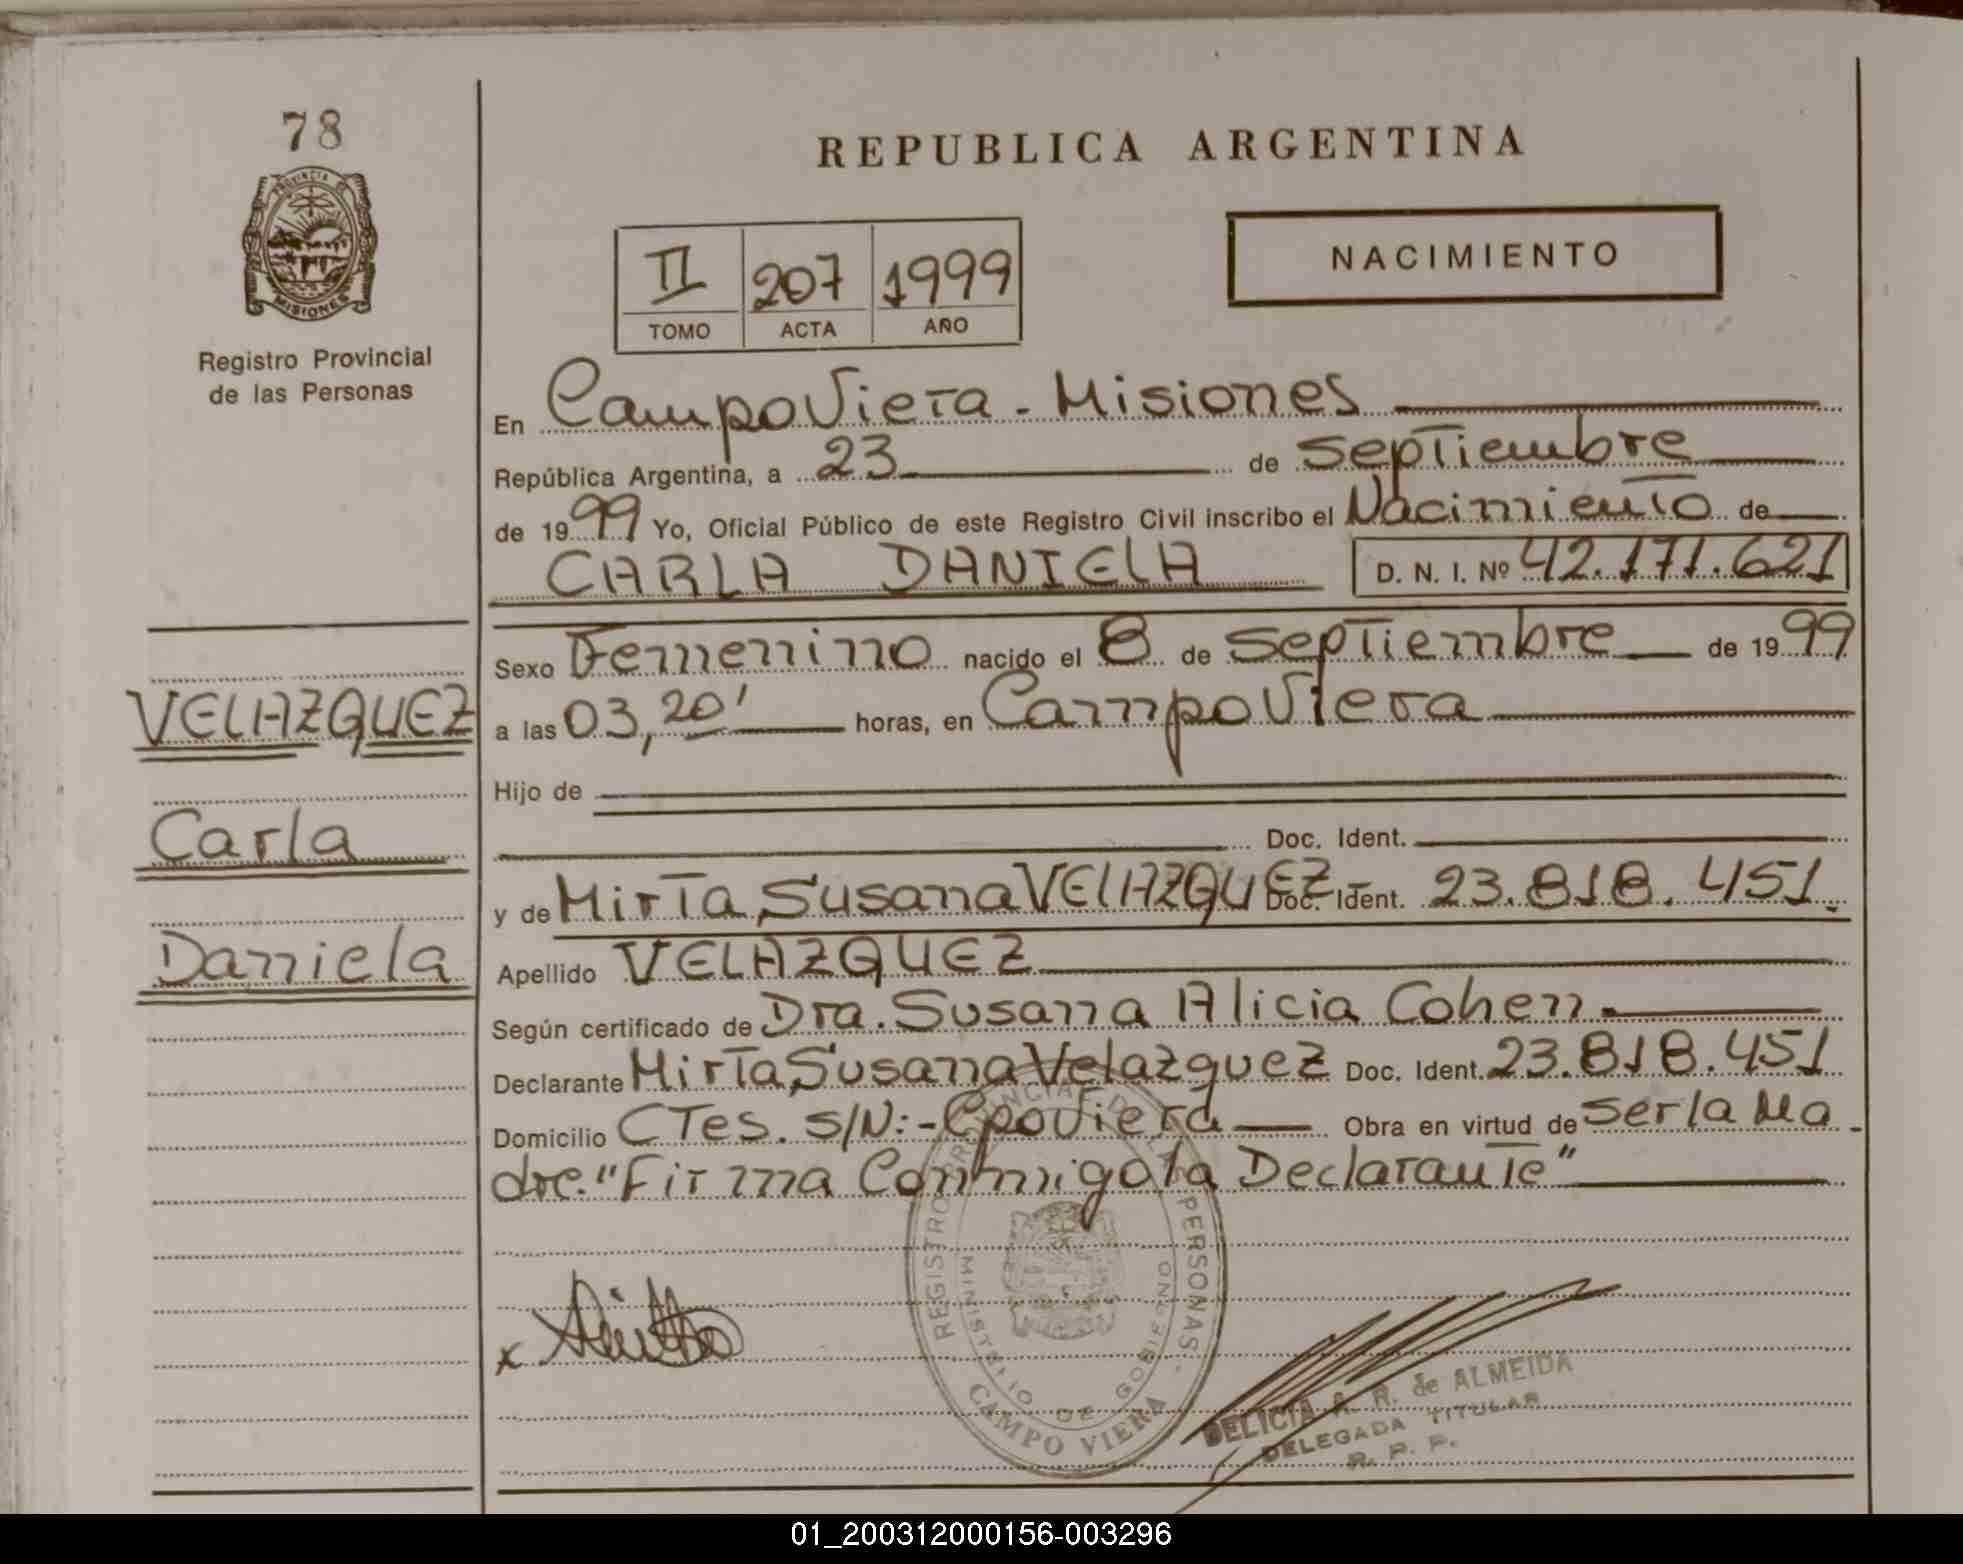 78
PROVINCIA DE
MISIONES
Registro Provincial
de las Personas
VELAZQUEZ
Carla
Daniela
REPUBLICA ARGENTINA
II 207 1999
TOMO ACTA AÑO
NACIMIENTO
En Campo Viera - Misiones
República Argentina, a 23 de septiembre
de 1999 Yo, Oficial Público de este Registro Civil inscribo el Nacimiento de
CARLA DANIELA D. N. I. Nº 42.171.621
Sexo Femenino nacido el 8 de septiembre de 1999
a las 03,20' horas, en Campo Viera
Hijo de
Doc. Ident.
y de Mirta Susana VELAZQUEZ Doc. Ident. 23.818.451.
Apellido VELAZQUEZ
Según certificado de Dra. Susana Alicia Cohen
Declarante Mirta Susana Velazquez Doc. Ident. 23.818.451
Domicilio CTes. S/N:- Cpo Viera Obra en virtud de ser la Ma-
dre. "Firma Conmigo la Declarante"
REGISTRO PROVINCIAL DE LAS PERSONAS -
MINISTERIO DE GOBIERNO
CAMPO VIERA
x
DELICIA A. R. de ALMEIDA
DELEGADA TITULAR
R. P. P.
01_200312000156-003296